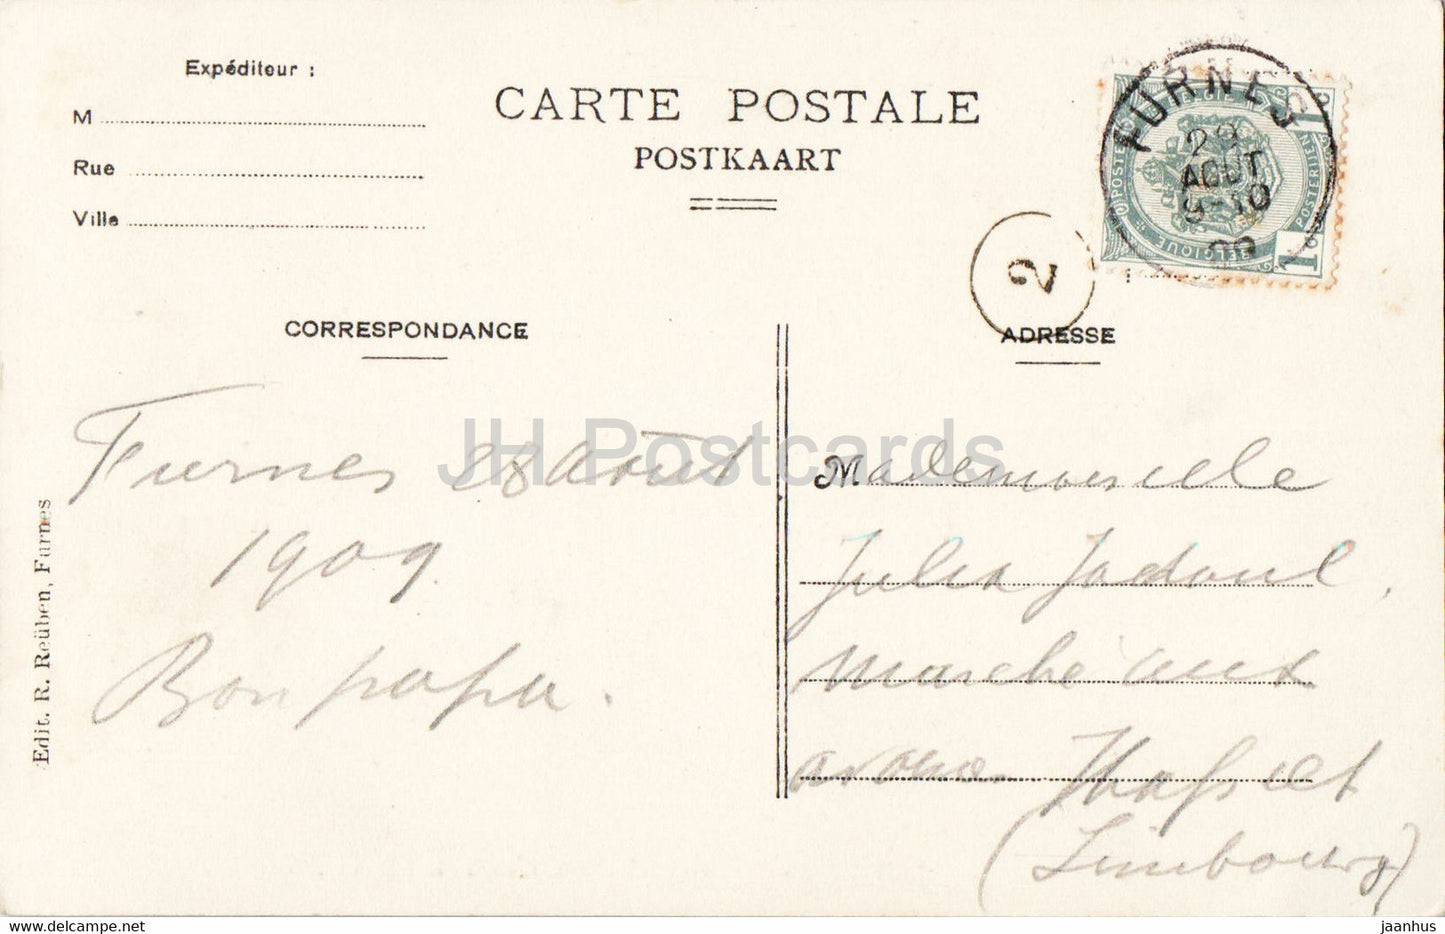 Expéditeur :
M
Rue
Ville
CARTE POSTALE
POSTKAART
FURNES
29
AOUT
9-10
09
POSTES
BELGIQUE
POSTERIJEN
1
1
2
CORRESPONDANCE
ADRESSE
Furnes 28 Août
1909
Bon papa.
Mademoiselle
Julia Jadoul,
Marché aux
avoines Hasselt
(Limbourg)
Edit. R. Reüben, Furnes
JH Postcards
www.delcampe.net
jaanhus